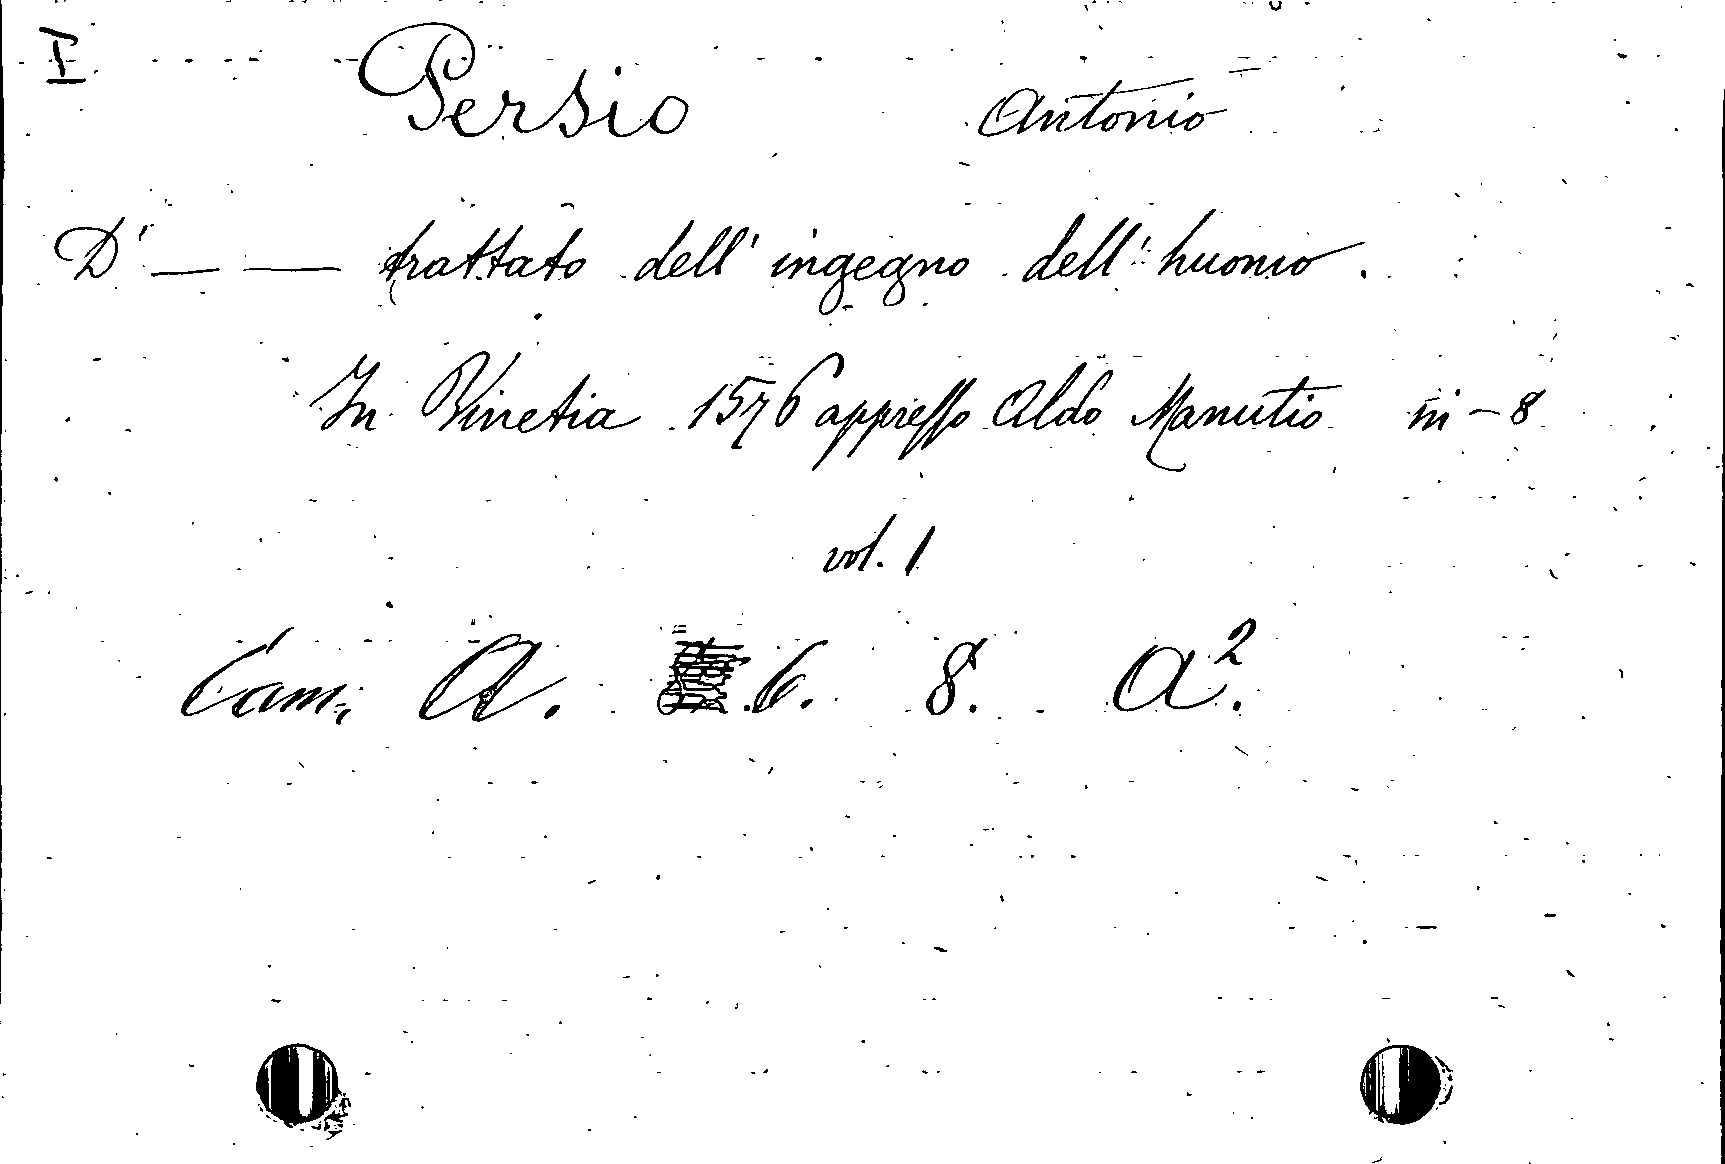 I Persio Antonio
D' — — trattato dell' ingegno dell' huomo.
In Vinetia 1576 appresso Aldo Manutio in-8
vol. 1
Cam. A. 6. 8. A².